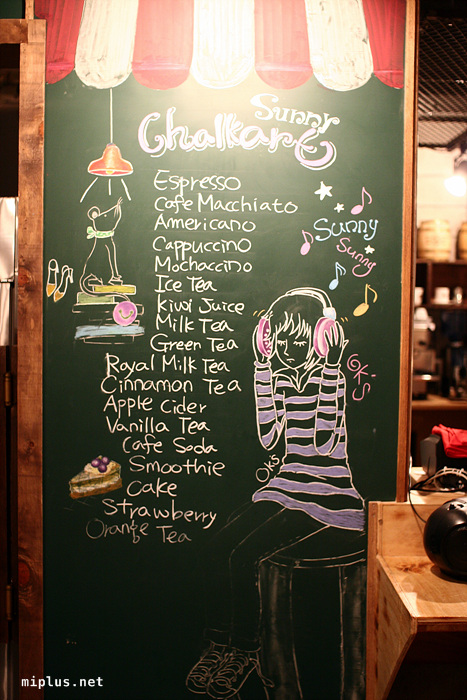 Sunny
Chalkart
Espresso
Cafe Macchiato
Americano
Cappuccino
Mochaccino
Ice Tea
Kiwi Juice
Milk Tea
Green Tea
Royal Milk Tea
Cinnamon Tea
Apple Cider
Vanilla Tea
Cafe Soda
Smoothie
Cake
Strawberry
Orange Tea
Sunny
Sunny
OK's
OK's
miplus.net